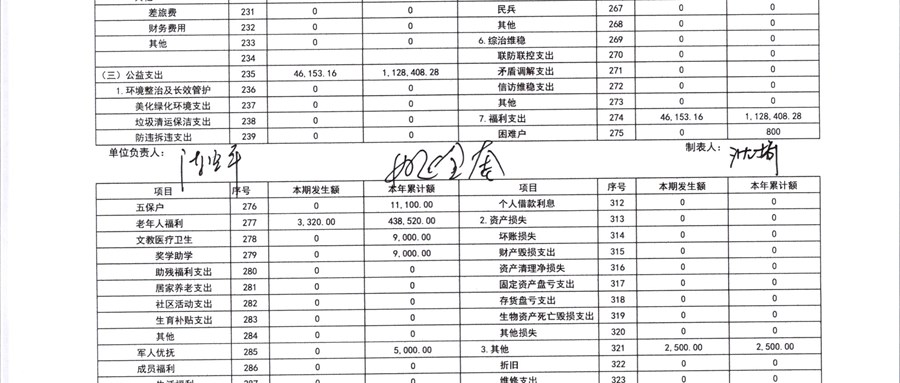 差旅费 231 0 0 民兵 267 0 0
财务费用 232 0 0 其他 268 0 0
其他 233 0 0 6.综治维稳 269 0 0
234 联防联控支出 270 0 0
(三)公益支出 235 46,153.16 1,128,408.28 矛盾调解支出 271 0 0
1.环境整治及长效管护 236 0 0 信访维稳支出 272 0 0
美化绿化环境支出 237 0 0 其他 273 0 0
垃圾清运保洁支出 238 0 0 7.福利支出 274 46,153.16 1,128,408.28
防违拆违支出 239 0 0 困难户 275 0 800
单位负责人: 制表人:
项目 序号 本期发生额 本年累计额 项目 序号 本期发生额 本年累计额
五保户 276 0 11,100.00 个人借款利息 312 0 0
老年人福利 277 3,320.00 438,520.00 2.资产损失 313 0 0
文教医疗卫生 278 0 9,000.00 坏账损失 314 0 0
奖学助学 279 0 9,000.00 财产毁损支出 315 0 0
助残福利支出 280 0 0 资产清理净损失 316 0 0
居家养老支出 281 0 0 固定资产盘亏支出 317 0 0
社区活动支出 282 0 0 存货盘亏支出 318 0 0
生育补贴支出 283 0 0 生物资产死亡毁损支出 319 0 0
其他 284 0 0 其他损失 320 0 0
军人优抚 285 0 5,000.00 3.其他 321 2,500.00 2,500.00
成员福利 286 0 0 折旧 322 0 0
287 0 0 维修支出 323 0 0